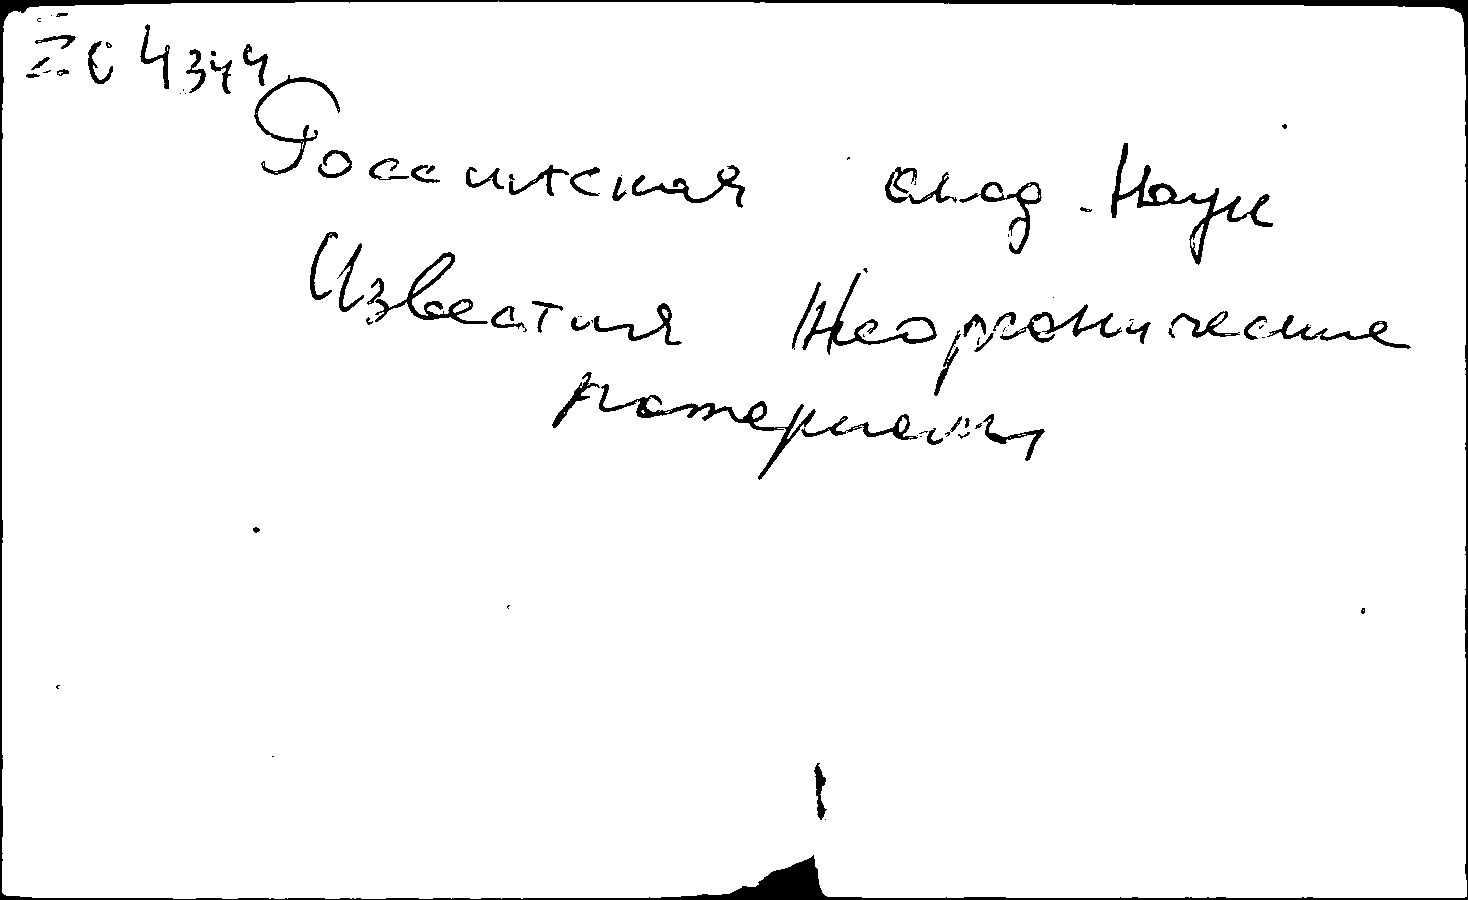 ZC 4344
Российская акад. Наук
Известия Неорганические
материалы